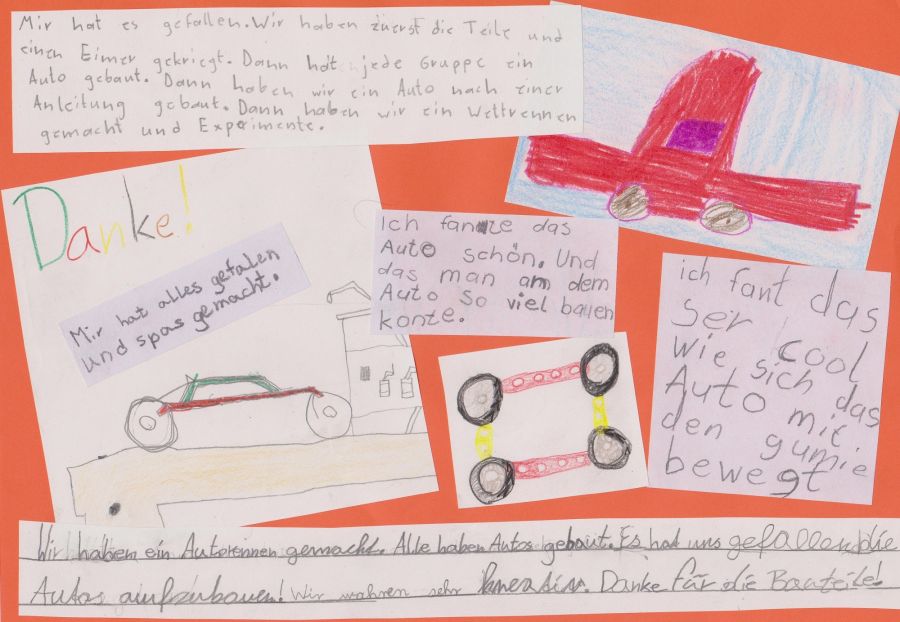 Mir hat es gefallen. Wir haben zuerst die Teile und
einen Eimer gekriegt. Dann hat jede Gruppe ein
Auto gebaut. Dann haben wir ein Auto nach einer
Anleitung gebaut. Dann haben wir ein Wettrennen
gemacht und Experimente.
Danke!
Mir hat alles gefalen
und spas gemacht.
Ich fande das
Auto schön. Und
das man am dem
Auto so viel bauen
konte.
ich fant das
ser cool
wie sich das
Auto mit
den gumie
bewegt
Wir haben ein Autorennen gemacht. Alle haben Autos gebaut. Es hat uns gefallen die
Autos aufzubauen! Wir wahren sehr . Danke für die Bauteile!